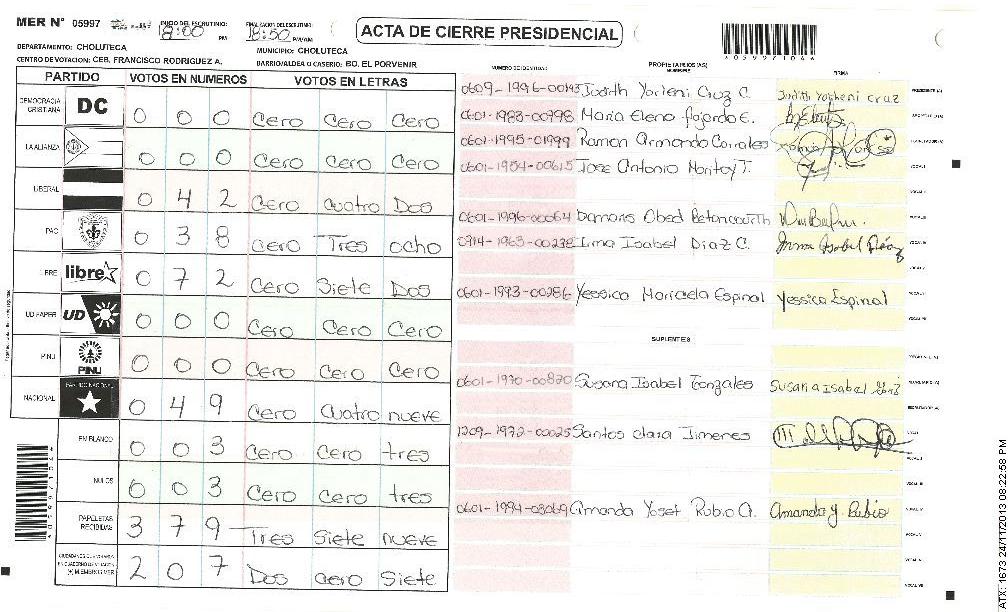 MER N° 05997
INICIO DEL ESCRUTINIO: 18:00 PM
FINALIZACION DEL ESCRUTINIO: 18:50 PM/AM
ACTA DE CIERRE PRESIDENCIAL
DEPARTAMENTO: CHOLUTECA
MUNICIPIO: CHOLUTECA
CENTRO DE VOTACION: CEB. FRANCISCO RODRIGUEZ A.
BARRIO/ALDEA O CASERIO: BO. EL PORVENIR
PARTIDO VOTOS EN NUMEROS VOTOS EN LETRAS
DEMOCRACIA CRISTIANA DC 0 0 0 Cero Cero Cero
LA ALIANZA 0 0 0 Cero Cero Cero
LIBERAL 0 4 2 Cero Cuatro Dos
PAC 0 3 8 Cero Tres ocho
LIBRE libre 0 7 2 Cero Siete Dos
UD FAPER UD 0 0 0 Cero Cero Cero
PINU PINU 0 0 0 Cero Cero Cero
NACIONAL PARTIDO NACIONAL 0 4 9 Cero Cuatro nueve
EN BLANCO 0 0 3 Cero Cero tres
NULOS 0 0 3 Cero Cero tres
PAPELETAS RECIBIDAS 3 7 9 Tres Siete nueve
MIEMBROS MER 2 0 7 Dos cero Siete
NUMERO DE IDENTIDAD PROPIETARIOS (AS) NOMBRES FIRMA
0609-1996-00193 Judith Yorleni Cruz C. PRESIDENTE (A)
0601-1983-00998 Maria Elena
0601-1995-01999 Ramon Armando Corrales
0601-1954-00615 Jose Antonio
0601-1996-00064 Damaris Obed Betancourth
0914-1963-00238 Irma Isabel Diaz C. Irma Isabel Díaz
0601-1993-00286 Yessica Maricela Espinal Yessica Espinal
SUPLENTES
0601-1970-00820 Susana Isabel Gonzales Susana Isabel
1209-1972-00025 Santos Clara Jimenes
0601-1994-03069 Amanda Yoset Rubio A. Amanda Y. Rubio
ATX: 1673 24/11/2013 08:22:58 PM